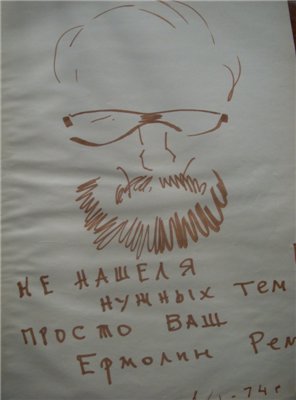 НЕ НАШЕЛЯ
НУЖНЫХ ТЕМ
ПРОСТО ВАШ
ЕРМОЛИН РЕМ